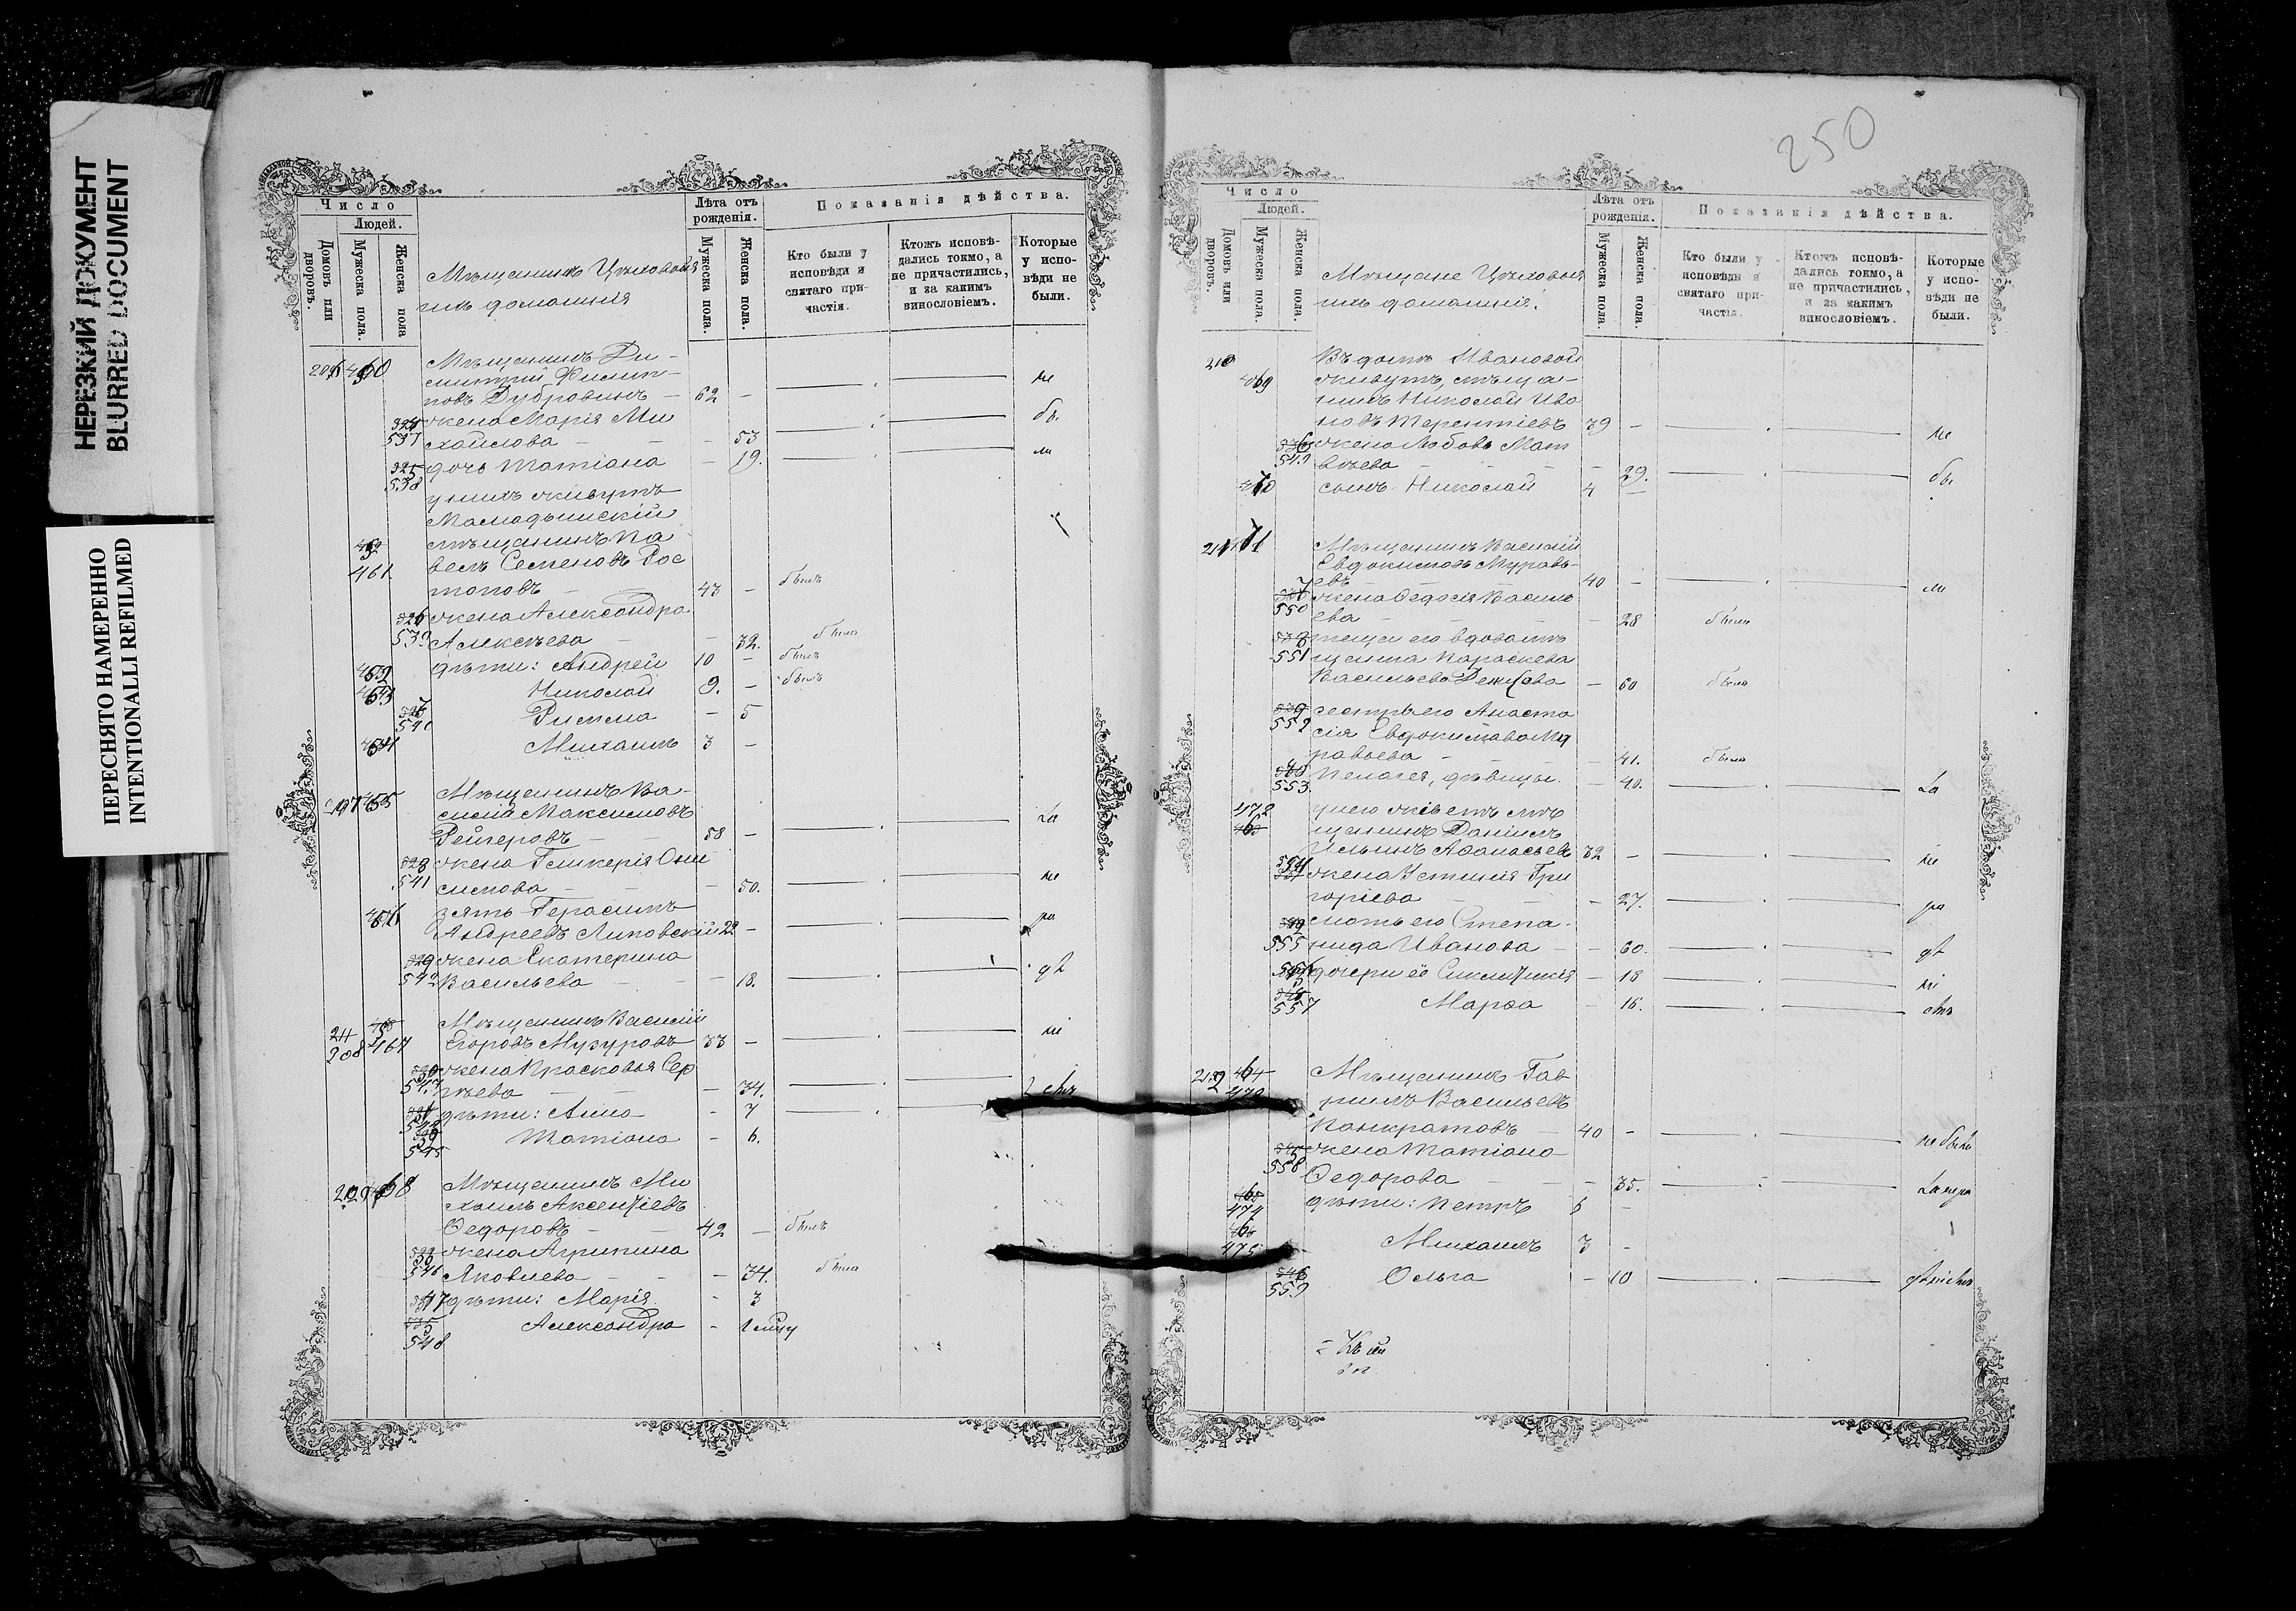 НЕРЕЗКИЙ ДОКУМЕНТ
BLURRED DOCUMENT
ПЕРЕСНЯТО НАМЕРЕННО
INTENTIONALLI REFILMED
Число
Людей.
Домовъ или дворовъ.
Мужеска пола.
Женска пола
Мѣщанинъ Цѣховыя
ихъ домашнія
Лѣта отъ рожденія.
Мужеска пола.
Женска пола.
Показанія дѣйства.
Кто были у исповѣди и святаго причастія.
Ктожъ исповѣдались токмо, а не причастились, и за какимъ винословіемъ.
Которые у исповѣди не были.
Мѣщанинъ Ди-
митрій Филип-
повъ Дубровинъ — 62 — не
жена Марія Ми бы
537 хайлова — 53
538 дочь Татіана — 19. ли
у нихъ живутъ
Мамадышскій
мѣщанинъ Па
461 велъ Семеновъ Рос
топовъ — 43 — былъ
жена Александра
539 Алексѣева — 32. была
дѣти: Андрей 10 — былъ
Николай 9. — былъ
540 Римма — 5
Михаилъ 3 —
Мѣщанинъ Ва-
силій Максимовъ
Рейнеровъ — 58 — за
жена Гликерія Они
541 симова — 50. не
зять Герасимъ
Андреевъ Липовскій 22 — ра
жена Екатерина
542 Васильева — 18. дѣ
Мѣщанинъ Василій
208 467 Егоровъ Музуровъ 33 — ні
жена Прасковья Сер
543 гѣева — 34. емъ
дѣти: Анна — 7
545 Татіана — 6.
209 468 Мѣщанинъ Ми
хаилъ Аксентіевъ
Ѳедоровъ — 42 — былъ
жена Агрипина
546 Яковлева — 34. была
547 дѣти: Марія — 3
548 Александра —
250
Число
Людей.
Домовъ или дворовъ.
Мужеска пола.
Женска пола.
Мѣщане Цѣховыя
ихъ домашнія.
Лѣта отъ рожденія.
Мужеска пола.
Женска пола.
Показанія дѣйства.
Кто были у исповѣди и святаго причастія.
Ктожъ исповѣдались токмо, а не причастились, и за какимъ винословіемъ.
Которые у исповѣди не были.
210 Въ домѣ Ивановой
469 живутъ, мѣща-
нинъ Николай Ива
новъ Терентіевъ 39 — не
жена Любовь Мат
549 вѣева — 29. бы
470 сынъ Николай 4 —
211 471 Мѣщанинъ Василій
Евдокимовъ Муравь-
евъ 40 — ли
жена Ѳедосія Василь
550 ева — 28 была
теща его вдова мѣ
551 щанка Параскева
Васильева — 60 была
сестры его Анаста
552 сія Евдокимова Му
равьева — 41. была
553 Пелагея, дѣвицы. — 40. за
472 у него живетъ мѣ
щанинъ Даніилъ
Ильинъ Аѳанасьевъ 32 — не
554 жена Устинія Гри
горіева — 27. ра
мать его Степа-
555 нида Иванова — 60. дѣ
556 дочери её Сиклитикія — 18 ні
557 Марѳа — 16. емъ
212 Мѣщанинъ Гав
473 риилъ Васильевъ
Панкратовъ — 40 — не были
жена Татіана
558 Ѳедорова — 35. за нера
474 дѣти: Петръ 6 —
475 Михаилъ 3 —
559 Ольга — 10 дѣніемъ